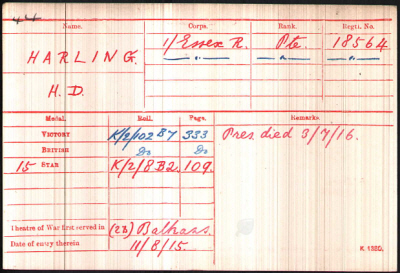 Name. Corps. Rank. Regtl. No.
HARLING. 1/Essex R. Pte. 18564
H. D. — " — — " — — " —
Medal. Roll. Page. Remarks.
VICTORY K/2/102 B7 333 Pres. died 3/7/16.
BRITISH Do Do
15 STAR K/2/8 B2. 109.
Theatre of War first served in (2B) Balkans.
Date of entry therein 11/8/15.
K 1380.